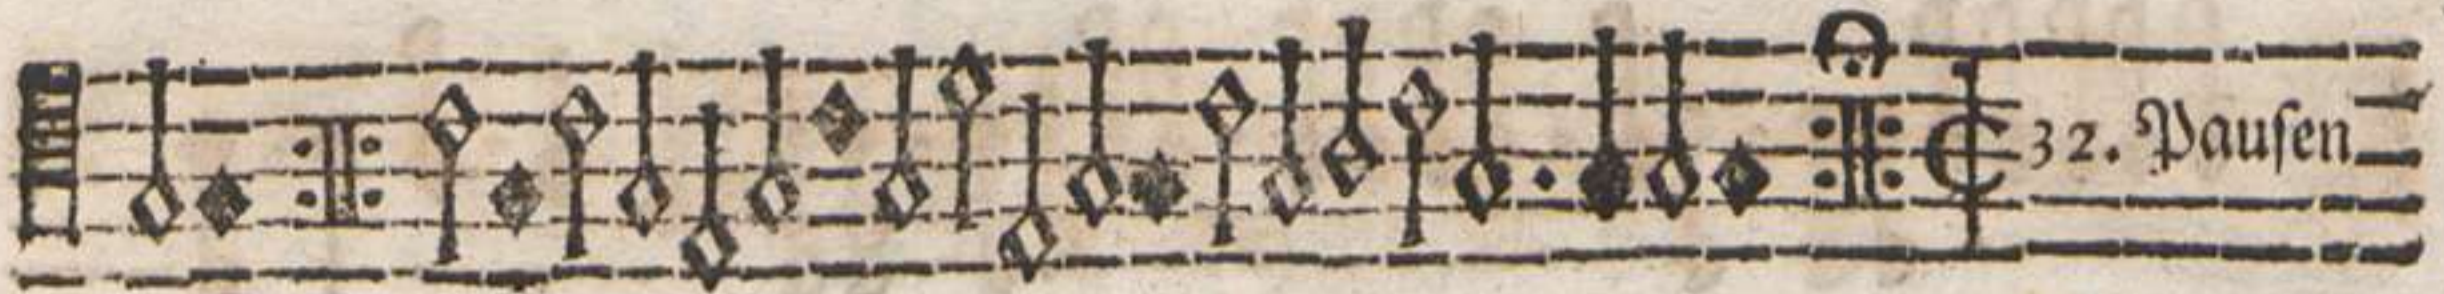 32. Pauſen